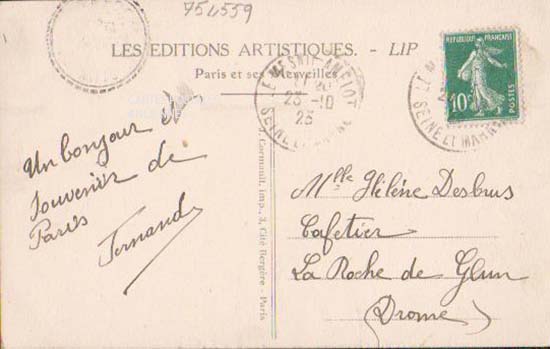 754559
LES EDITIONS ARTISTIQUES. - LIP
Paris et ses Merveilles
LE MESNIL-AMELOT
23-10
23
SEINE ET MARNE
REPUBLIQUE FRANÇAISE
10c
POSTES
LE M
SEINE ET MARNE
Un bonjour et
Souvenir de
Paris
Fernand
Cormault, imp., 3, Cité Bergère - Paris
Mlle Hélène Desbrus
Cafetier
La Roche de Glun
(Drome)